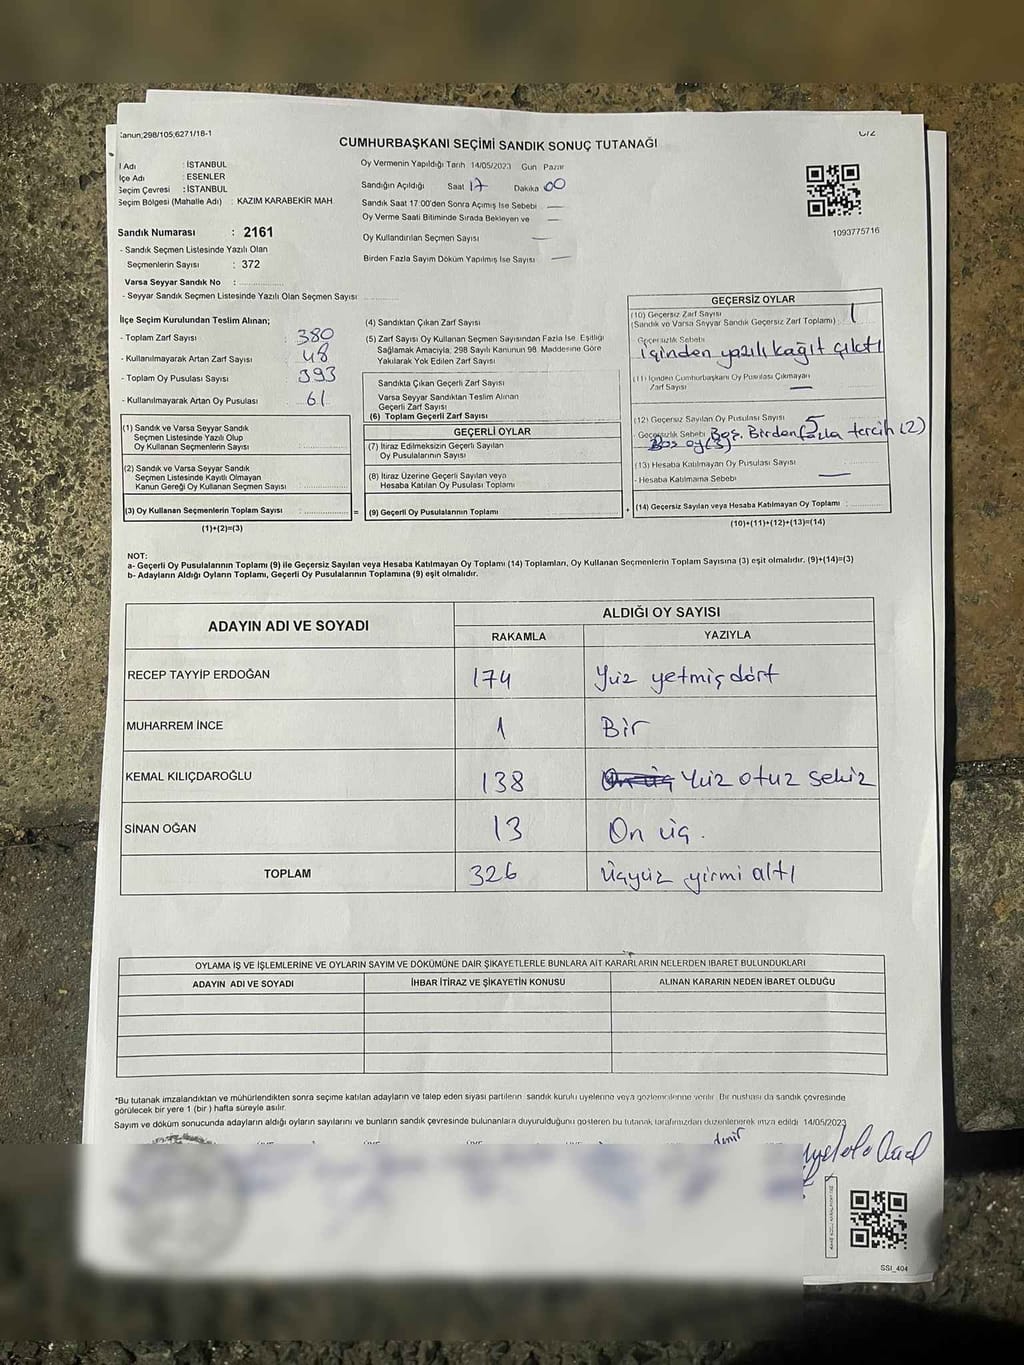 Kanun;298/105;6271/18-1
CUMHURBAŞKANI SEÇİMİ SANDIK SONUÇ TUTANAĞI
İl Adı : İSTANBUL
İlçe Adı : ESENLER
Seçim Çevresi : İSTANBUL
Seçim Bölgesi (Mahalle Adı) : KAZIM KARABEKİR MAH.
Oy Vermenin Yapıldığı Tarih 14/05/2023 Gün Pazar
Sandığın Açıldığı Saat 17 Dakika 00
Sandık Saat 17:00'den Sonra Açımış İse Sebebi —
Oy Verme Saati Bitiminde Sırada Bekleyen ve —
Oy Kullandırılan Seçmen Sayısı —
Birden Fazla Sayım Döküm Yapılmış İse Sayısı —
1093775716
Sandık Numarası : 2161
- Sandık Seçmen Listesinde Yazılı Olan
Seçmenlerin Sayısı : 372
Varsa Seyyar Sandık No :
- Seyyar Sandık Seçmen Listesinde Yazılı Olan Seçmen Sayısı
İlçe Seçim Kurulundan Teslim Alınan;
- Toplam Zarf Sayısı : 380
- Kullanılmayarak Artan Zarf Sayısı : 48
- Toplam Oy Pusulası Sayısı : 393
- Kullanılmayarak Artan Oy Pusulası : 61
(1) Sandık ve Varsa Seyyar Sandık
Seçmen Listesinde Yazılı Olup
Oy Kullanan Seçmenlerin Sayısı
(2) Sandık ve Varsa Seyyar Sandık
Seçmen Listesinde Kayıtlı Olmayan
Kanun Gereği Oy Kullanan Seçmen Sayısı
(3) Oy Kullanan Seçmenlerin Toplam Sayısı :
(1)+(2)=(3)
(4) Sandıktan Çıkan Zarf Sayısı
(5) Zarf Sayısı Oy Kullanan Seçmen Sayısından Fazla İse, Eşitliği
Sağlamak Amacıyla, 298 Sayılı Kanunun 98. Maddesine Göre
Yakılarak Yok Edilen Zarf Sayısı
Sandıkta Çıkan Geçerli Zarf Sayısı
Varsa Seyyar Sandıktan Teslim Alınan
Geçerli Zarf Sayısı
(6) Toplam Geçerli Zarf Sayısı
GEÇERLİ OYLAR
(7) İtiraz Edilmeksizin Geçerli Sayılan
Oy Pusulalarının Sayısı
(8) İtiraz Üzerine Geçerli Sayılan veya
Hesaba Katılan Oy Pusulası Toplamı
= (9) Geçerli Oy Pusulalarının Toplamı
GEÇERSİZ OYLAR
(10) Geçersiz Zarf Sayısı 1
(Sandık ve Varsa Seyyar Sandık Geçersiz Zarf Toplamı)
Geçersizlik Sebebi
içinden yazılı kağıt çıktı
(11) İçinden Cumhurbaşkanı Oy Pusulası Çıkmayan
Zarf Sayısı —
(12) Geçersiz Sayılan Oy Pusulası Sayısı 5
- Geçersizlik Sebebi Boş, Birden fazla tercih (2)
Boş oy (3)
(13) Hesaba Katılmayan Oy Pusulası Sayısı
- Hesaba Katılmama Sebebi —
+ (14) Geçersiz Sayılan veya Hesaba Katılmayan Oy Toplamı :
(10)+(11)+(12)+(13)=(14)
NOT:
a- Geçerli Oy Pusulalarının Toplamı (9) ile Geçersiz Sayılan veya Hesaba Katılmayan Oy Toplamı (14) Toplamları, Oy Kullanan Seçmenlerin Toplam Sayısına (3) eşit olmalıdır. (9)+(14)=(3)
b- Adayların Aldığı Oyların Toplamı, Geçerli Oy Pusulalarının Toplamına (9) eşit olmalıdır.
ADAYIN ADI VE SOYADI
ALDIĞI OY SAYISI
RAKAMLA YAZIYLA
RECEP TAYYİP ERDOĞAN 174 Yüz yetmiş dört
MUHARREM İNCE 1 Bir
KEMAL KILIÇDAROĞLU 138 Yüz otuz sekiz
SİNAN OĞAN 13 On üç.
TOPLAM 326 üçyüz yirmi altı
OYLAMA İŞ VE İŞLEMLERİNE VE OYLARIN SAYIM VE DÖKÜMÜNE DAİR ŞİKAYETLERLE BUNLARA AİT KARARLARIN NELERDEN İBARET BULUNDUKLARI
ADAYIN ADI VE SOYADI İHBAR İTİRAZ VE ŞİKAYETİN KONUSU ALINAN KARARIN NEDEN İBARET OLDUĞU
*Bu tutanak imzalandıktan ve mühürlendikten sonra seçime katılan adayların ve talep eden siyasi partilerin sandık kurulu üyelerine veya gözlemcilerine verilir. Bir nüshası da sandık çevresinde
görülecek bir yere 1 (bir ) hafta süreyle asılır.
Sayım ve döküm sonucunda adayların aldığı oyların sayılarını ve bunların sandık çevresinde bulunanlara duyurulduğunu gösteren bu tutanak tarafımızdan düzenlenerek imza edildi. 14/05/2023
SSI_404